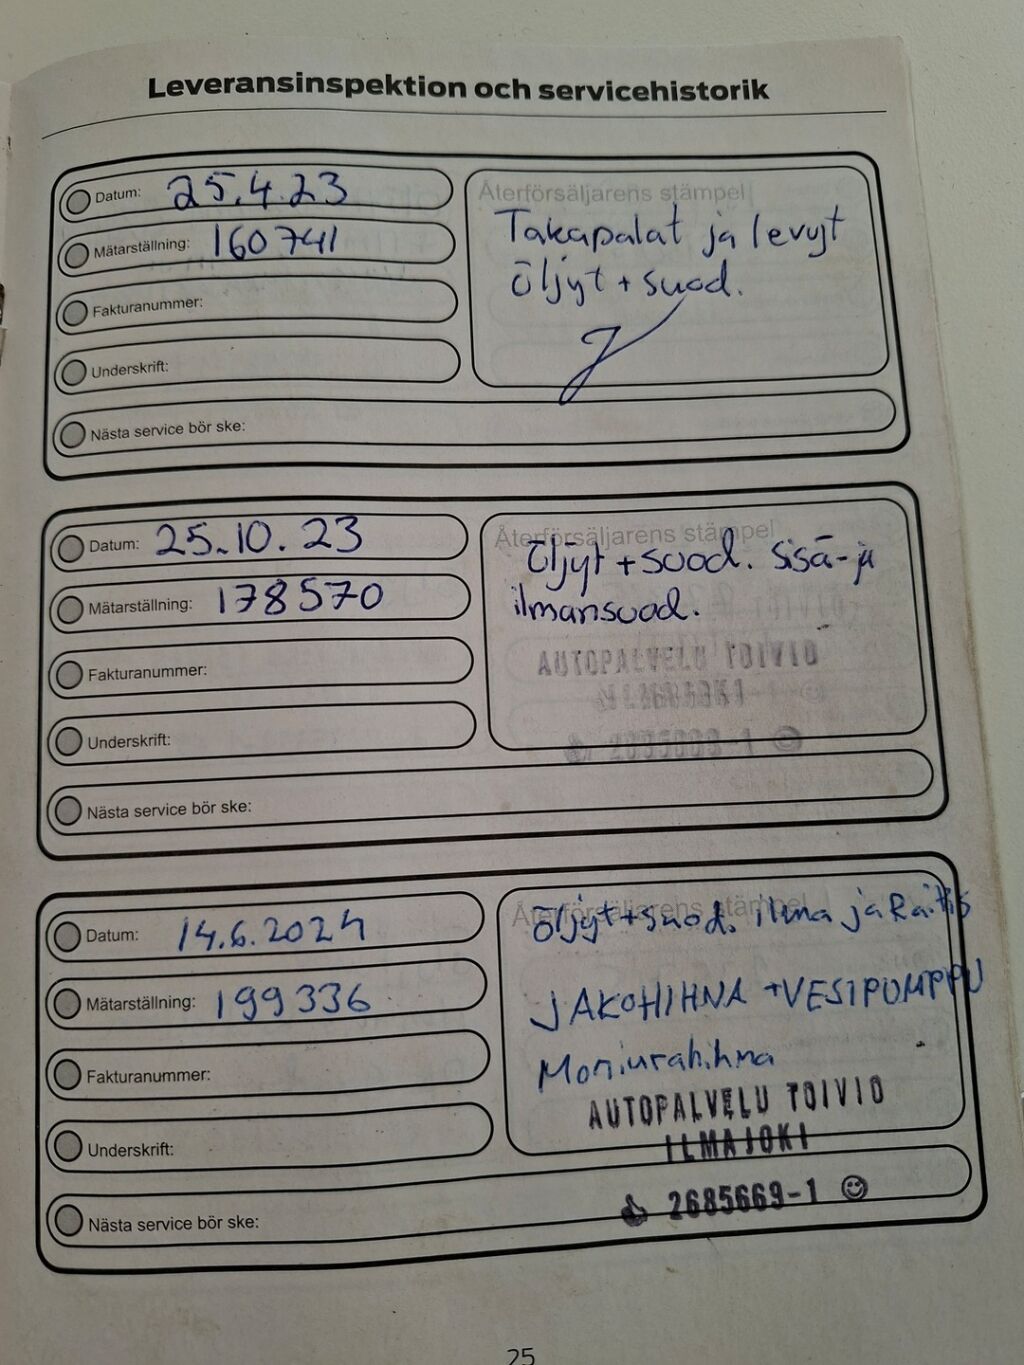 Leveransinspektion och servicehistorik
Datum: 25.4.23
Mätarställning: 160741
Fakturanummer:
Underskrift:
Nästa service bör ske:
Återförsäljarens stämpel
Takapalat ja levyt
öljyt + suod.
Datum: 25.10.23
Mätarställning: 178570
Fakturanummer:
Underskrift:
Nästa service bör ske:
Återförsäljarens stämpel
Öljyt + suod. Sisä- ja
ilmansuod.
AUTOPALVELU TOIVIO
ILMAJOKI
Datum: 14.6.2024
Mätarställning: 199336
Fakturanummer:
Underskrift:
Nästa service bör ske:
Återförsäljarens stämpel
Öljyt + suod. ilma ja Raitis
JAKOHIHNA + VESIPUMPPU
Moniurahihna
AUTOPALVELU TOIVIO
ILMAJOKI
2685669-1
25